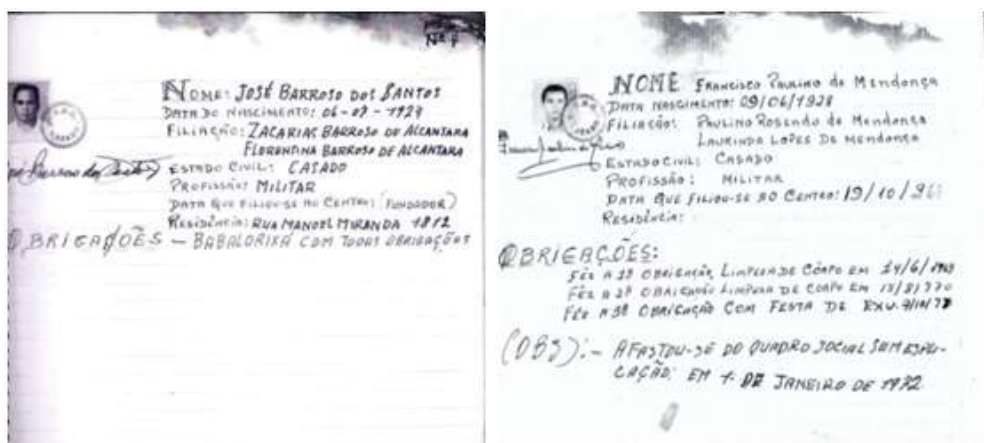 NOME: JOSÉ BARROSO DOS SANTOS
DATA DO NASCIMENTO: 06-07-1927
FILIAÇÃO: ZACARIAS BARROSO DE ALCANTARA
FLORENTINA BARROSO DE ALCANTARA
ESTADO CIVIL: CASADO
PROFISSÃO: MILITAR
DATA QUE FILIOU-SE AO CENTRO: (FUNDADOR)
RESIDÊNCIA: RUA MANOEL MIRANDA 1812
OBRIGAÇÕES – BABALORIXÁ COM TODAS OBRIGAÇÕES
NOME FRANCISCO PAULINO de MENDONÇA
DATA NASCIMENTO: 09/06/1928
FILIAÇÃO: PAULINO ROSENDO de MENDONÇA
LAURINDA LOPES DE MENDONÇA
ESTADO CIVIL: CASADO
PROFISSÃO: MILITAR
DATA QUE FILIOU-SE AO CENTRO: 19/10/
RESIDÊNCIA:
OBRIGAÇÕES:
FÊZ A 1ª OBRIGAÇÃO, LIMPEZA DE CÔRPO EM
FÊZ A 2ª OBRIGAÇÃO LIMPEZA DE CORPO EM
FÊZ A 3ª OBRIGAÇÃO COM FESTA DE EXU.
(OBS):- AFASTOU-SE DO QUADRO SOCIAL SEM EXPLI-
CAÇÃO: EM 1. DE JANEIRO DE 1972